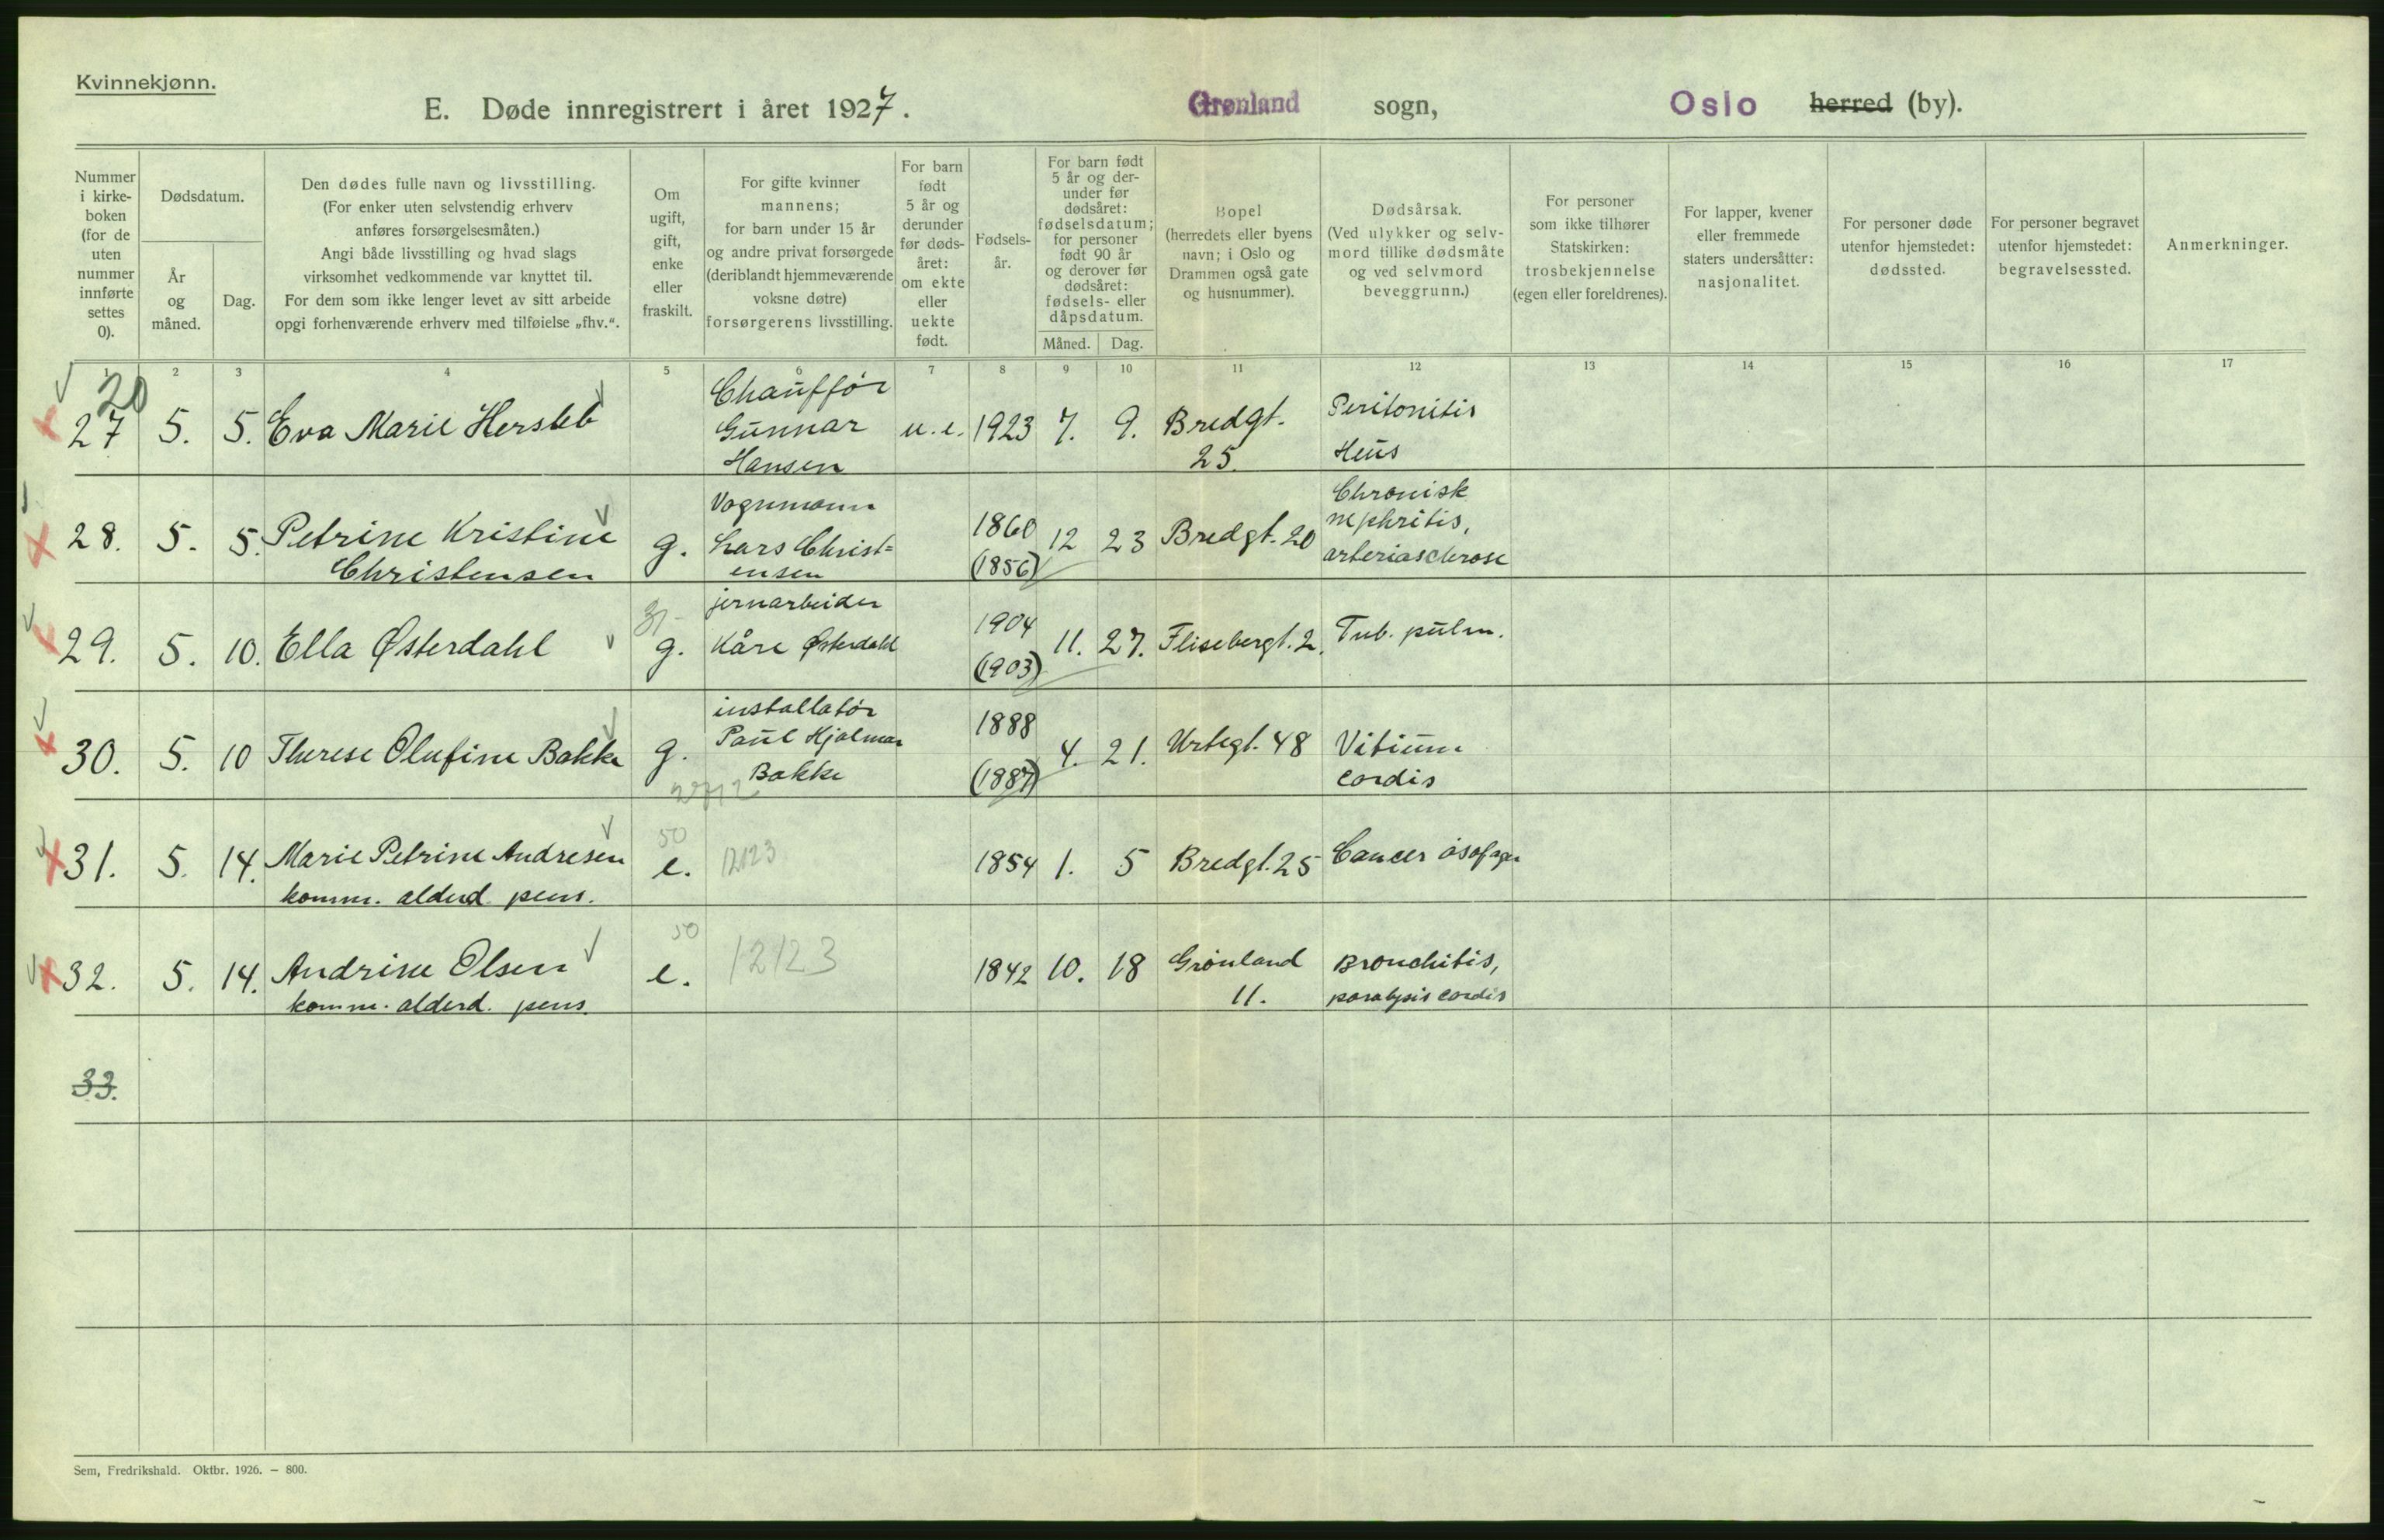 Kvinnekjønn.
E. Døde innregistrert i året 1927. Grønland sogn, Oslo herred (by).
Nummer i kirkeboken (for de uten nummer innførte settes 0).
Dødsdatum.
År og måned.
Dag.
Den dødes fulle navn og livsstilling.
(For enker uten selvstendig erhverv
anføres forsørgelsesmåten.)
Angi både livsstilling og hvad slags
virksomhet vedkommende var knyttet til.
For dem som ikke lenger levet av sitt arbeide
opgi forhenværende erhverv med tilføielse „fhv.“.
Om ugift, gift, enke eller fraskilt.
For gifte kvinner
mannens;
for barn under 15 år
og andre privat forsørgede
(deriblandt hjemmeværende
voksne døtre)
forsørgerens livsstilling.
For barn født 5 år og derunder før dødsåret: om ekte eller uekte født.
Fødsels-
år.
For barn født
5 år og der-
under før
dødsåret:
fødselsdatum;
for personer
født 90 år
og derover før
dødsåret:
fødsels- eller
dåpsdatum.
Måned. Dag.
Bopel
(herredets eller byens
navn; i Oslo og
Drammen også gate
og husnummer).
Dødsårsak.
(Ved ulykker og selv-
mord tillike dødsmåte
og ved selvmord
beveggrunn.)
For personer
som ikke tilhører
Statskirken:
trosbekjennelse
(egen eller foreldrenes).
For lapper, kvener
eller fremmede
staters undersåtter:
nasjonalitet.
For personer døde
utenfor hjemstedet:
dødssted.
For personer begravet
utenfor hjemstedet:
begravelsessted.
Anmerkninger.
1 2 3 4 5 6 7 8 9 10 11 12 13 14 15 16 17
20
27 5. 5. Eva Marie Hersleb Chauffør Gunnar Hansen u.e. 1923 7. 9. Bredgt. 25. Peritonitis Ileus
28. 5. 5. Petrine Kristine Christensen g. Vognmann Lars Christ=ensen 1860 (1856) 12 23 Bredgt. 20 Chronisk nephritis, arteriasclerose
29. 5. 10. Ella Østerdahl g. jernarbeider Kåre Østerdahl 1904 (1903) 11. 27. Flisebergt. 2. Tub. pulm.
30. 5. 10 Therese Olufine Bakke g. installatør Paul Hjalmar Bakke 1888 (1887) 4. 21. Urtegt. 48 Vitium cordis
31. 5. 14. Marie Petrine Andresen komm. alderd. pens. 50 e. 12123 1854 1. 5 Bredgt. 25 Cancer øsofager
32. 5. 14. Andrine Olsen komm. alderd. pens. 50 e. 12123 1842 10. 18 Grønland 11. Bronchitis, paralysis cordis
33.
Sem, Fredrikshald. Oktbr. 1926. — 800.